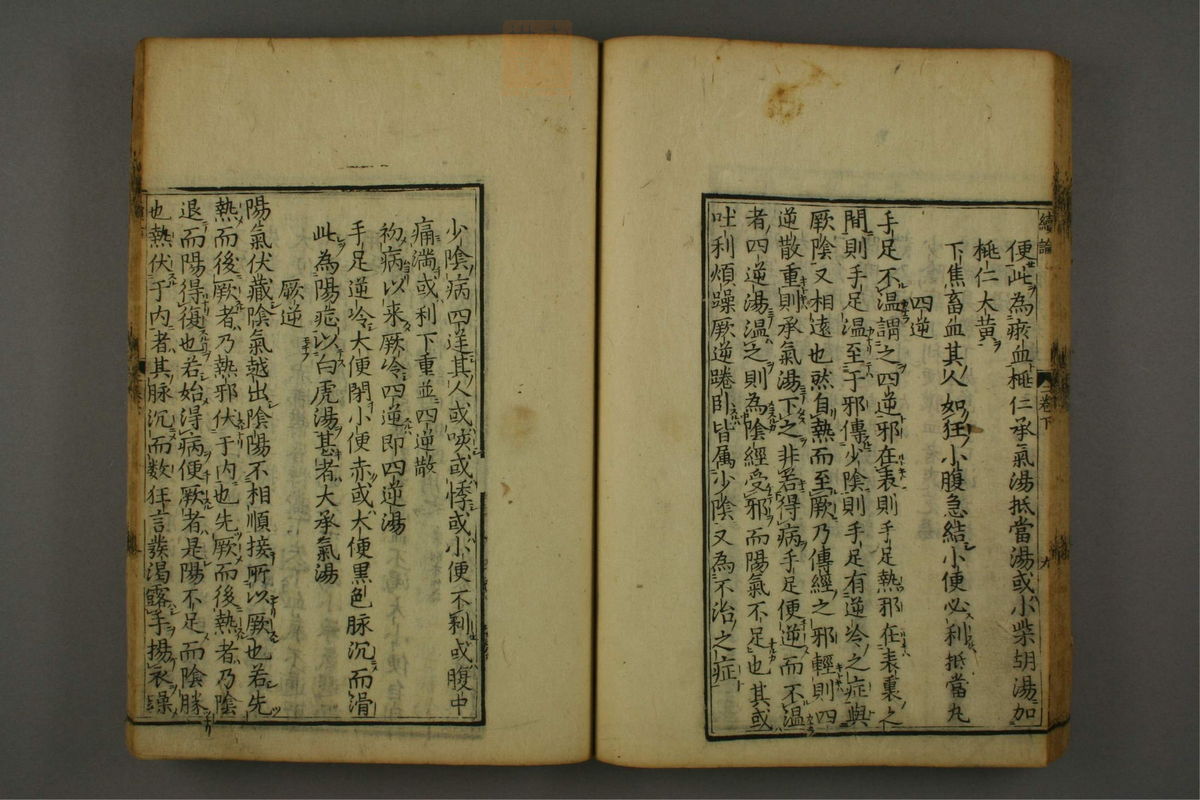 續論
二卷下
九
便此為瘀血桃仁承氣湯抵當湯或小柴胡湯加
桃仁大黃
下焦畜血其人如狂小腹急結小便必利抵當丸
四逆
手足不溫謂之四逆邪在表則手足熱邪在表裏之
間則手足溫至于邪傳少陰則手足有逆冷之症與
厥陰又相遠也然自熱而至厥乃傳經之邪輕則四
逆散重則承氣湯下之非若得病手足便逆而不溫
者四逆湯溫之則為陰經受邪而陽氣不足也其或
吐利煩躁厥逆踡臥皆属少陰又為不治之症
少陰病四逆其人或咳或悸或小便不利或腹中
痛満或利下重並四逆散
初病以来厥冷四逆即四逆湯
手足逆冷大便閉小便赤或大便黒色脉沉而滑
此為陽症以白虎湯甚者大承氣湯
厥逆
陽氣伏藏陰氣越出陰陽不相順接所以厥也若先
熱而後厥者乃熱邪伏于内也先厥而後熱者乃陰
退而陽得復也若始得病便厥者是陽不足而陰勝
也熱伏于内者其脉沉而数狂言譟渴露手揚衣躁